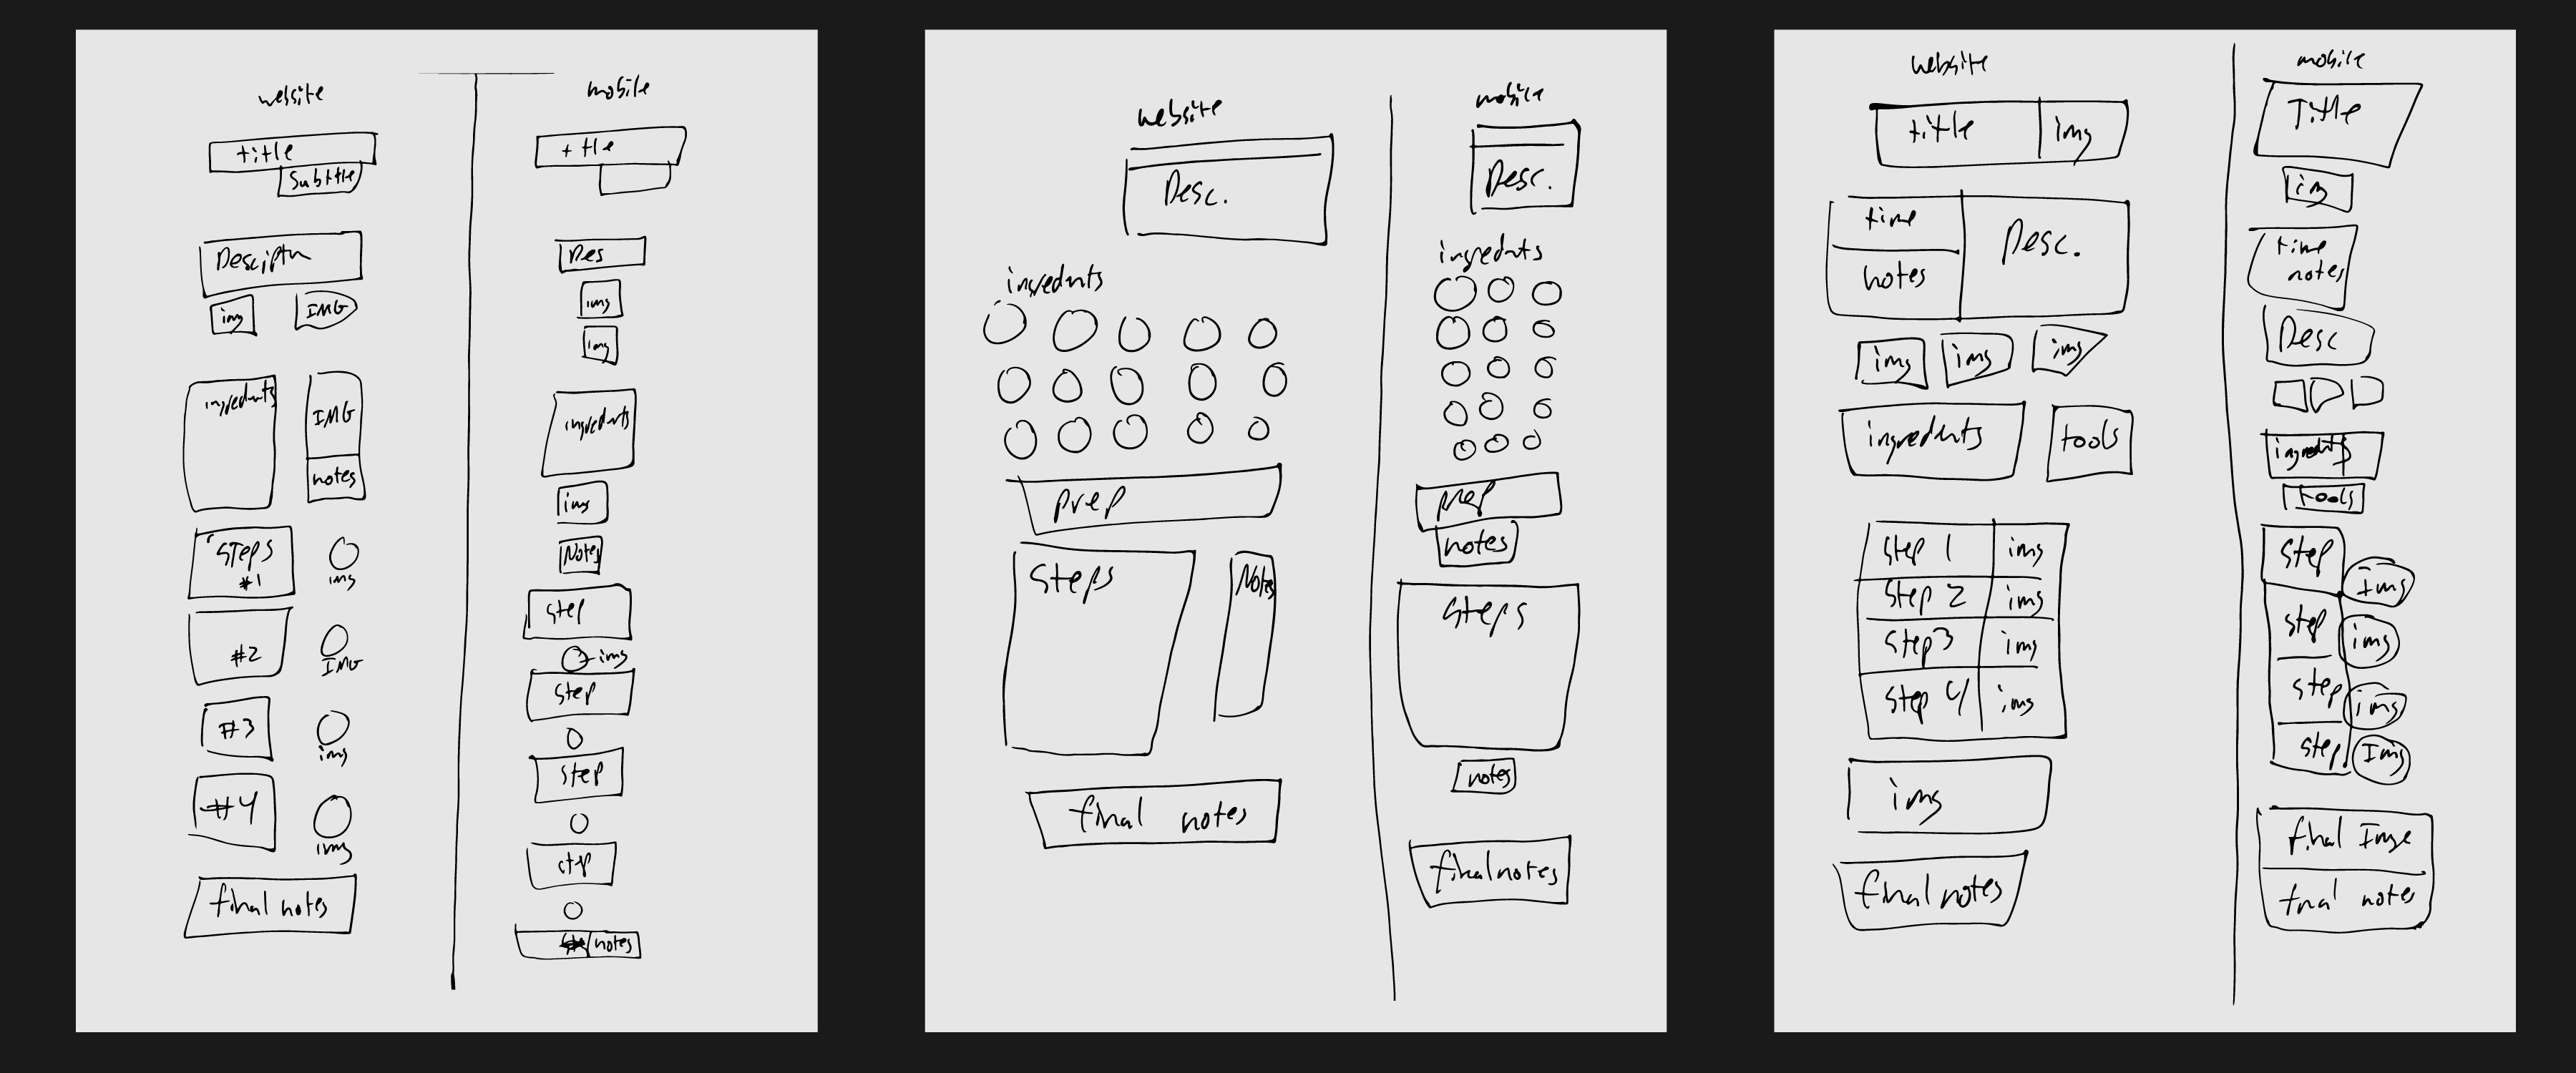 website
title
Subtitle
Desciptn
img
IMG
ingredients
IMG
notes
STEPS
#1
img
#2
IMG
#3
img
#4
img
final notes
mobile
title
Des
img
img
ingredients
img
Notes
step
img
step
step
step
notes
website
Desc.
ingredents
prep
Steps
Notes
final notes
mobile
Desc.
ingredents
prep
notes
Steps
notes
final notes
website
title
img
time
notes
Desc.
img
img
img
ingredents
tools
Step 1
img
Step 2
img
Step 3
img
Step 4
img
img
final notes
mobile
Title
img
time
notes
Desc
ingredents
tools
step
Img
step
img
step
img
step
Img
final Image
final notes